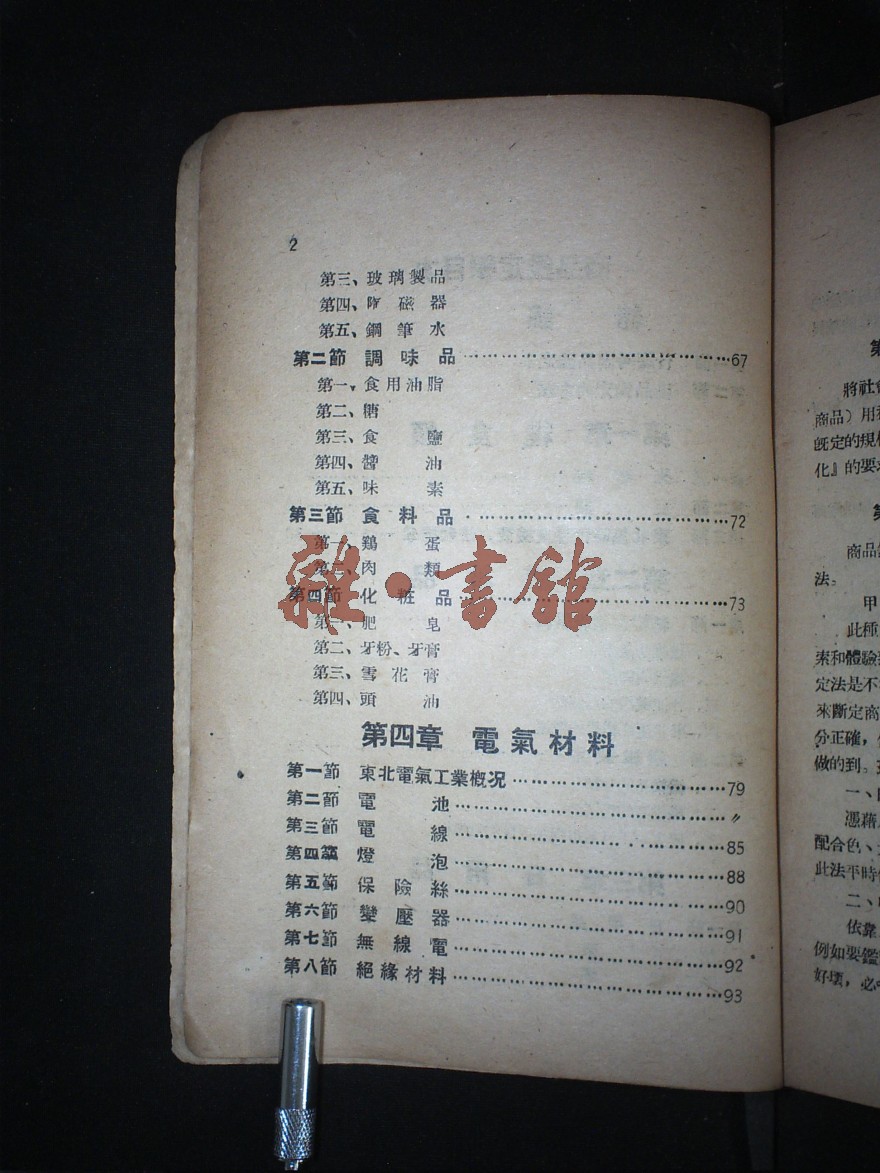 2
第三、玻璃製品
第四、陶磁器
第五、鋼筆水
第二節 調味品……………………………67
第一、食用油脂
第二、糖
第三、食鹽
第四、醬油
第五、味素
第三節 食料品……………………………72
第一、鶏蛋
第二、肉類
第四節 化粧品……………………………73
第一、肥皂
第二、牙粉、牙膏
第三、雪花膏
第四、頭油
雜·書館
第四章 電氣材料
第一節 東北電氣工業概況……………………79
第二節 電池……………………………〃
第三節 電線……………………………85
第四節 燈泡……………………………88
第五節 保險絲……………………………90
第六節 變壓器……………………………91
第七節 無線電……………………………92
第八節 絕緣材料……………………………93
第
將社會
商品）用
既定的規
化』的要
第
商品
法。
甲
此種
索和體驗
定法是不
來斷定商
分正確，
做的到。
一、
憑藉
配合色、
此法平時
二、
依靠
例如要鑑
好壞，必